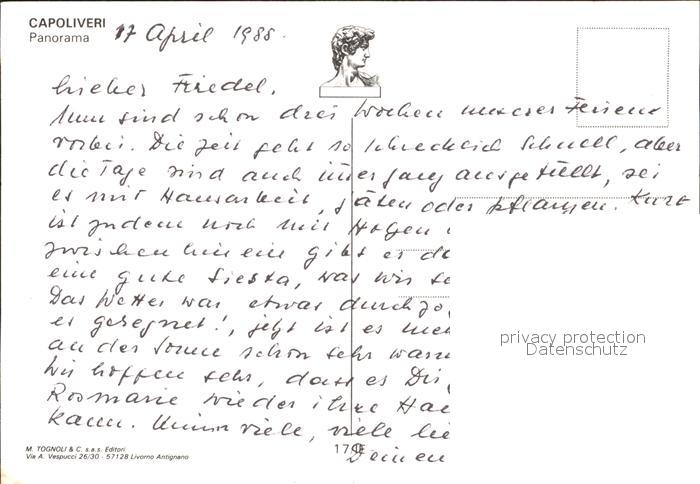 CAPOLIVERI
Panorama
17 April 1988.
Lieber Friedel.
Nun sind schon drei Wochen unserer Ferien
vorbei. Die Zeit geht so schrecklich schnell, aber
die Tage sind auch immer ganz ausgefüllt, sei
es mit Hausarbeit, jäten oder pflanzen. Kurt
ist zudem noch mit
zwischen hinein gibt es
eine gute Siesta, was wir
Das Wetter war etwas durchzo
es geregnet!, jetzt ist es
an der Sonne schon sehr warm
Wir hoffen sehr, dass es Dir
Rosmarie wieder ihre
kann. Nimm viele, viele lie
Deinen
privacy protection
Datenschutz
M. TOGNOLI & C. s.a.s. Editori
Via A. Vespucci 26/30 - 57128 Livorno Antignano